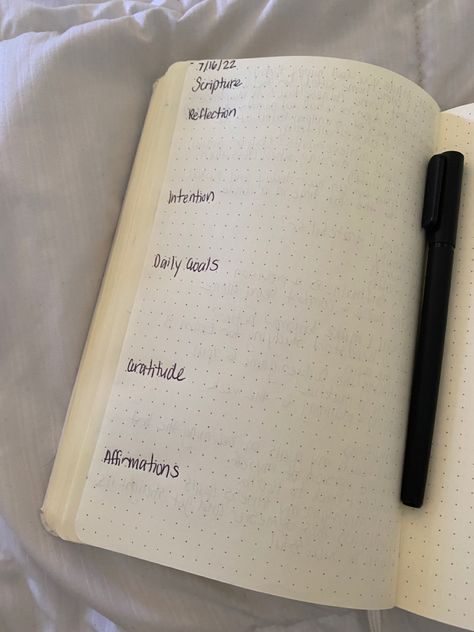 7/16/22
Scripture
Reflection
Intention
Daily Goals
Gratitude
Affirmations